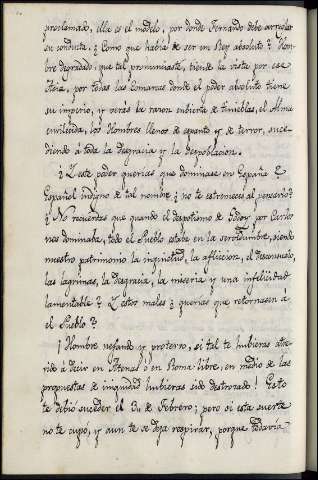 proclamado, illa es el modelo, por donde Fernando debe arreglar
su conducta. ¿Como que habia de ser un Rey absoluto? ¡Hom-
bre degradado, que tal pronunciaste, tiende la vista por esa
Asia, por todas las comarcas donde el poder absoluto tiene
su imperio, y veras la razon cubierta de tinieblas, el Alma
envilecida, los Hombres llenos de espanto y de terror, suce-
diendo á toda la desgracia y la despoblacion.
¿Y este poder querias que dominase en España?
Español indigno de tal nombre ¿no te estremeces al pensarlo?
¿No recuerdas que quando el despotismo de Godoy por Carlos
nos dominaba, todo el Pueblo estaba en la servidumbre, siendo
nuestro patrimonio la inquietud, la afliccion, el desconsuelo,
las lagrimas, la desgracia, la miseria y una infelicidad
lamentable? ¿Y estos males querias que retornasen á
el Pueblo?
¡Hombre nefando y protervo, si tal te hubieras atre-
vido á decir en Atenas ó en Roma libre, en medio de las
propuestas de iniquidad hubieras sido destrozado! Esto
te debió suceder el 3 de Febrero; pero si esta suerte
no te cupo, y aun te se deja respirar, porque todavia